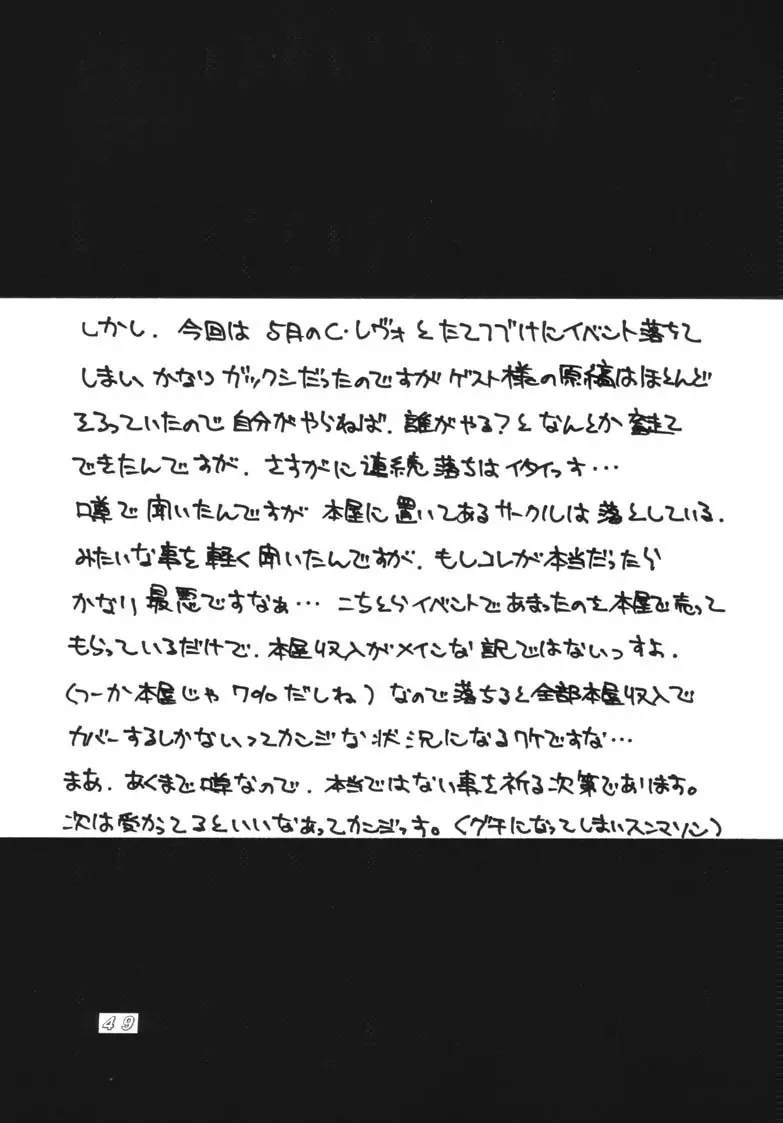 しかし、今回は5月のC・レヴォとたてつづけにイベント落ちて
しまい、かなりガックシだったのですがゲスト様の原稿はほとんど
そろっていたので自分がやらねば、誰がやる?となんとか奮起
できたんですが、さすがに連続落ちはイタイっす…
噂で聞いたんですが本屋に置いてあるサークルは落としている。
みたいな事を軽く聞いたんですが、もしコレが本当だったら
かなり最悪ですなぁ…こちとらイベントであまったのを本屋で売って
もらっているだけで、本屋収入がメインな訳ではないっすよ。
(つーか本屋じゃ7%だしね)なので落ちると全部本屋収入で
カバーするしかないってカンジな状況になるワケですな…
まあ、あくまで噂なので、本当ではない事を祈る次第であります。
次は受かってるといいなあってカンジっす。(グチになってしまいスンマソン)
49